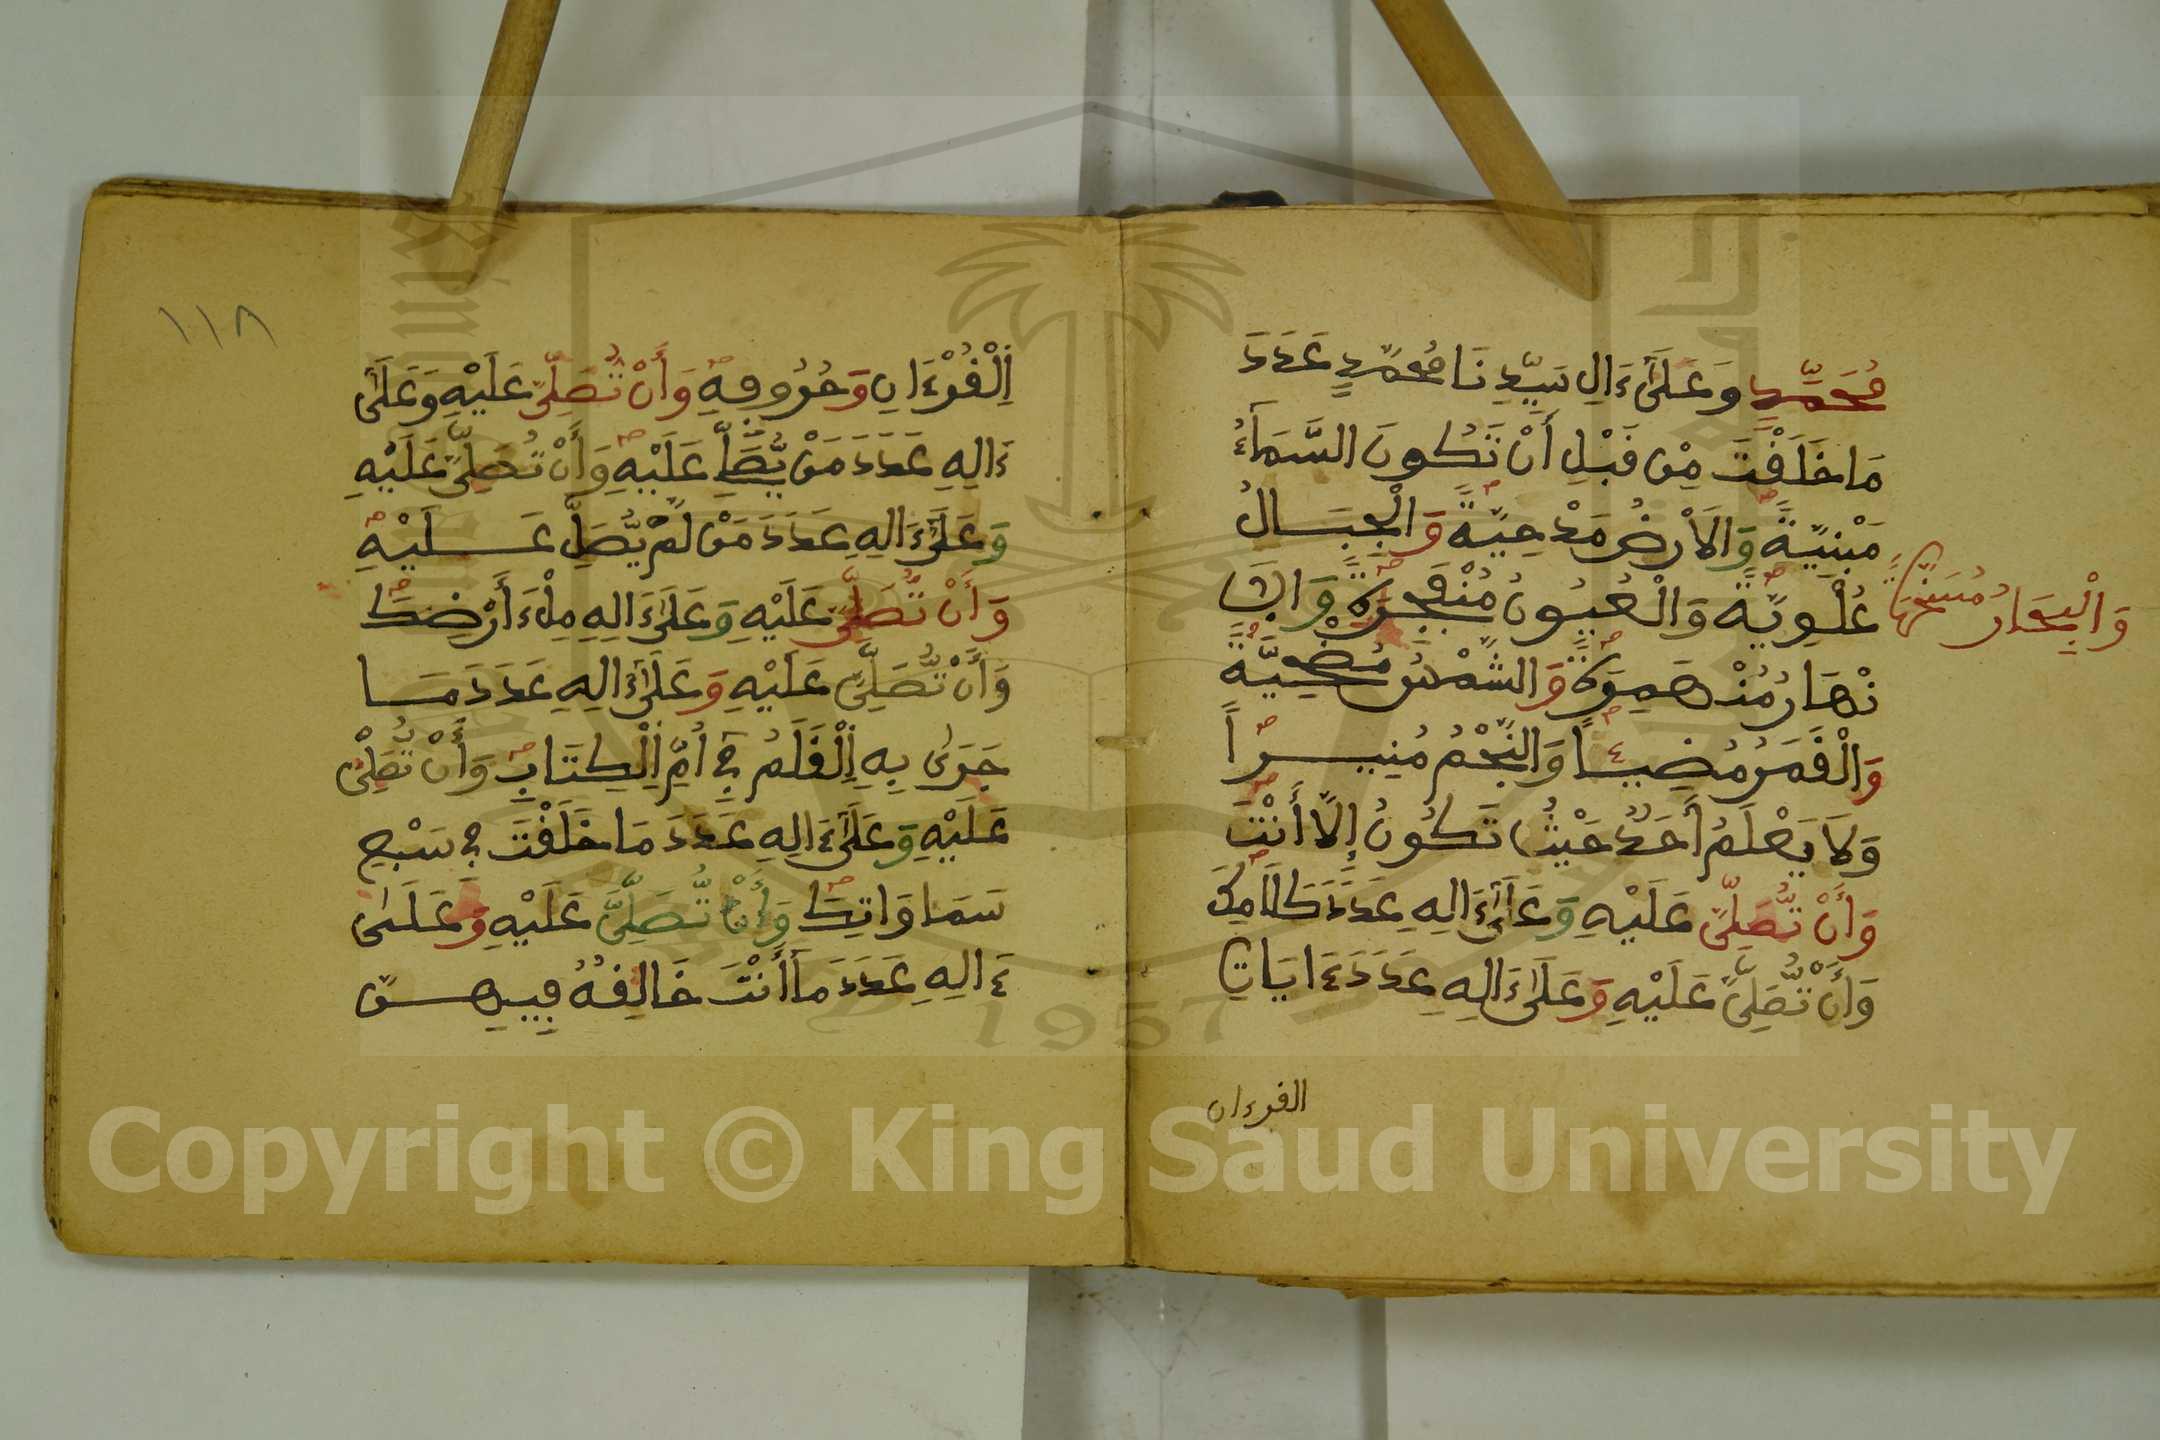 مُحَمَّدٍ وَعَلَىٰ ءَالِ سَيِّدِنَا مُحَمَّدٍ عَدَدَ
مَا خَلَقْتَ مِن قَبْلِ أَنْ تَكُونَ السَّمَآءُ
مَبْنِيَّةً وَالَارْضُ مَدْحِيَّةً وَالْجِبَالُ
عُلْوِيَّةً وَالْعُيُونُ مُنْفَجِرَةً وَالَا
نْهَارُ مُنْهَمِرَةً وَالشَّمْسُ مُضْحِيَّةً
وَالْقَمَرُ مُضِيئاً وَالنَّجْمُ مُنِيراً
وَلَا يَعْلَمُ أَحَدٌ حَيْثُ تَكُونُ إِلَّا أَنْتَ
وَأَنْ تُصَلِّيَ عَلَيْهِ وَعَلَىٰ ءَالِهِ عَدَدَ كَلَامِكَ
وَأَنْ تُصَلِّيَ عَلَيْهِ وَعَلَىٰ ءَالِهِ عَدَدَ ءَايَاتِ
القرءان
وَالْبِحَارُ
اَلْقُرْءَانِ وَحُرُوفِهِ وَأَنْ تُصَلِّيَ عَلَيْهِ وَعَلَىٰ
ءَالِهِ عَدَدَ مَنْ يُصَلِّ عَلَيْهِ وَأَنْ تُصَلِّيَ عَلَيْهِ
وَعَلَىٰ ءَالِهِ عَدَدَ مَن لَّمْ يُصَلِّ عَلَيْهِ
وَأَنْ تُصَلِّيَ عَلَيْهِ وَعَلَىٰ ءَالِهِ مِلْءَ أَرْضِكَ
وَأَنْ تُصَلِّيَ عَلَيْهِ وَعَلَىٰ ءَالِهِ عَدَدَ مَا
جَرَىٰ بِهِ اِلْقَلَمُ فِي أُمِّ اِلْكِتَابِ وَأَنْ تُصَلِّيَ
عَلَيْهِ وَعَلَىٰ ءَالِهِ عَدَدَ مَا خَلَقْتَ فِي سَبْعِ
سَمَاوَاتِكَ وَأَنْ تُصَلِّيَ عَلَيْهِ وَعَلَىٰ
ءَالِهِ عَدَدَ مَا أَنْتَ خَالِقُهُ فِيهِنَّ
١١٨
1957
Copyright © King Saud University